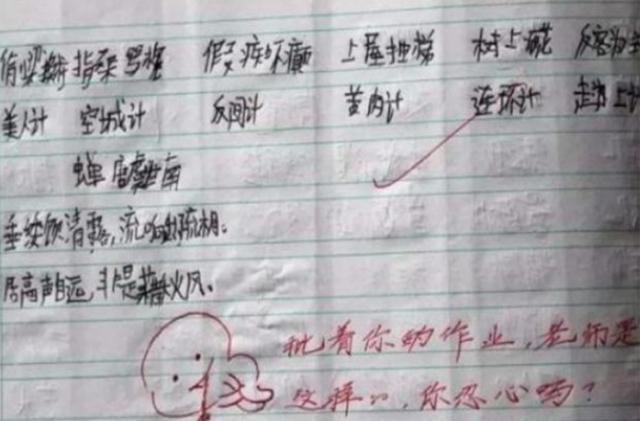 指桑骂槐 上屋抽梯 树上 反客为
美人计 空城计 反间计 苦肉计 连环计 走为上
蝉 虞世南
垂緌饮清露,流响出疏桐。
居高声自远,非是藉火风。
批着你的作业,老师是
这样,你忍心吗?